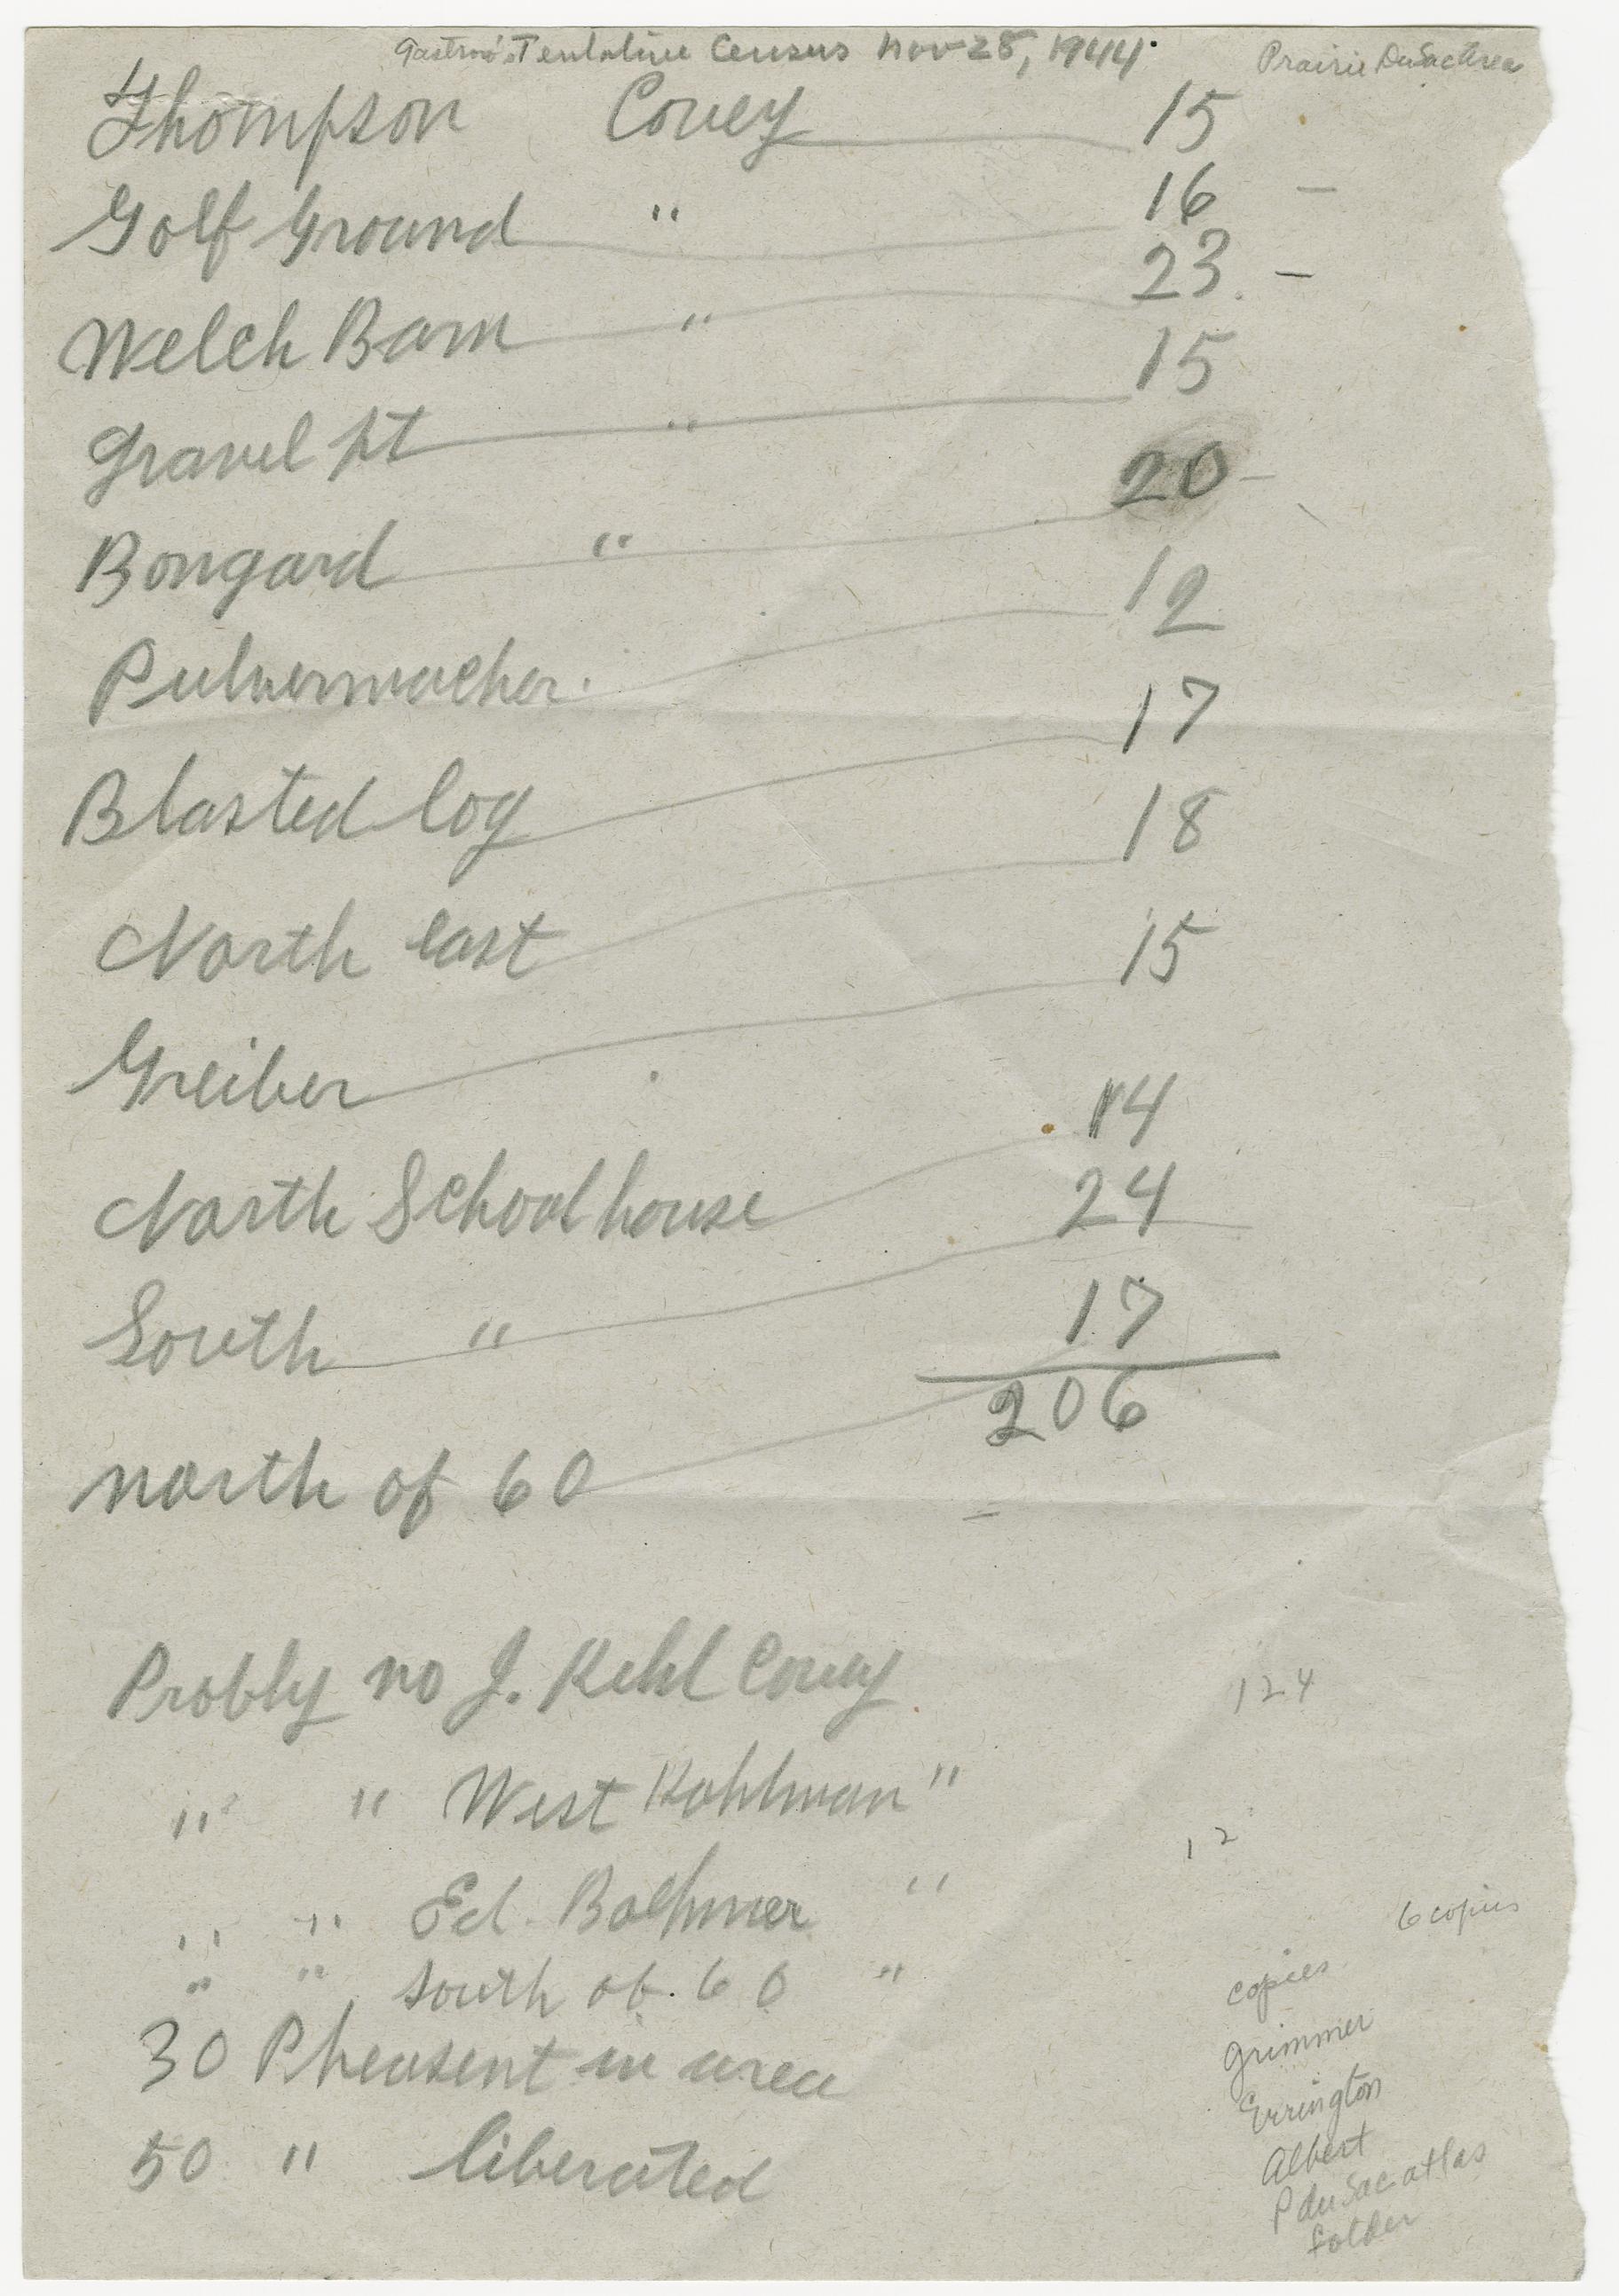 Gastrow's Tentative Census Nov 28, 1944. Prairie DuSac Area
Thompson Covey 15
Golf Ground " 16 -
Welch Barn " 23. -
Gravel pt " 15
Bongard " 20 -
Pulvermacher. 12
Blasted log 17
North east 18
Greiber 15
North School house 14
South " 24
north of 60 17
206
Probly no J. Kehl Covey
124
" " West Kohlman "
12
" " Ed. Bolhmer "
6 copies
" " South of. 60 "
30 Pheasent in area
50 " liberated
copies
Grimmer
Errington
Albert
P du Sac atlas
folder